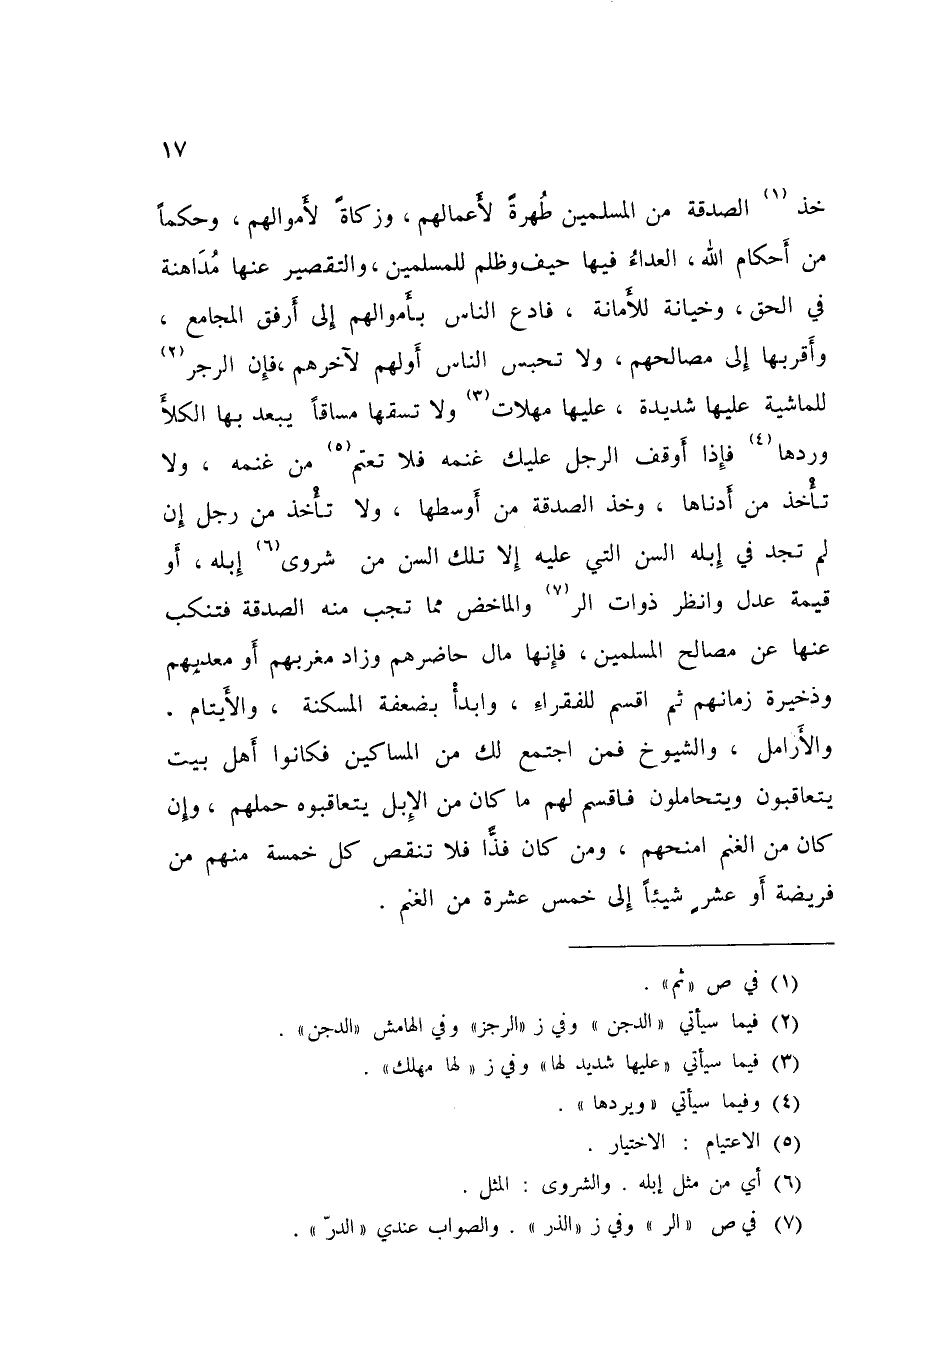 ١٧
خذ (١) الصدقة من المسلمين طُهرةً لأَعمالهم ، وزكاةً لأَموالهم ، وحكماً
من أَحكام الله ، العداءُ فيها حيف وظلم للمسلمين ، والتقصير عنها مُدَاهنة
في الحق ، وخيانة للأَمانة ، فادع الناس بأَموالهم إلى أَرفق المجامع ،
وأَقربها إلى مصالحهم ، ولا تحبس الناس أَولهم لآخرهم ، فإن الرجر (٢)
للماشية عليها شديدة ، عليها مهلات (٣) ولا تسقها مساقاً يبعد بها الكلأَ
وردها (٤) فإذا أَوقف الرجل عليك غنمه فلا تعتم (٥) من غنمه ، ولا
تأْخذ من أَدناها ، وخذ الصدقة من أَوسطها ، ولا تأْخذ من رجل إن
لم تجد في إبله السن التي عليه إلا تلك السن من شروى (٦) إبله ، أَو
قيمة عدل وانظر ذوات الر (٧) والماخض مما تجب منه الصدقة فتنكب
عنها عن مصالح المسلمين ، فإنها مال حاضرهم وزاد مغربهم أَو معديهم
وذخيرة زمانهم ثم اقسم للفقراءِ ، وابدأْ بضعفة المسكنة ، والأَيتام .
والأَرامل ، والشيوخ فمن اجتمع لك من المساكين فكانوا أَهل بيت
يتعاقبون ويتحاملون فاقسم لهم ما كان من الإبل يتعاقبوه حملهم ، وإن
كان من الغنم امنحهم ، ومن كان فذًّا فلا تنقص كل خمسة منهم من
فريضة أَو عشرٍ شيئاً إلى خمس عشرة من الغنم .
(١) في ص «ثم» .
(٢) فيما سيأتي «الدجن» وفي ز «الرجز» وفي الهامش «الدجن» .
(٣) فيما سيأتي «عليها شديد لها» وفي ز «لها مهلك» .
(٤) وفيما سيأتي «ويردها» .
(٥) الاعتيام : الاختيار .
(٦) أي من مثل إبله . والشروى : المثل .
(٧) في ص «الر» وفي ز «الذر» . والصواب عندي «الدرّ» .